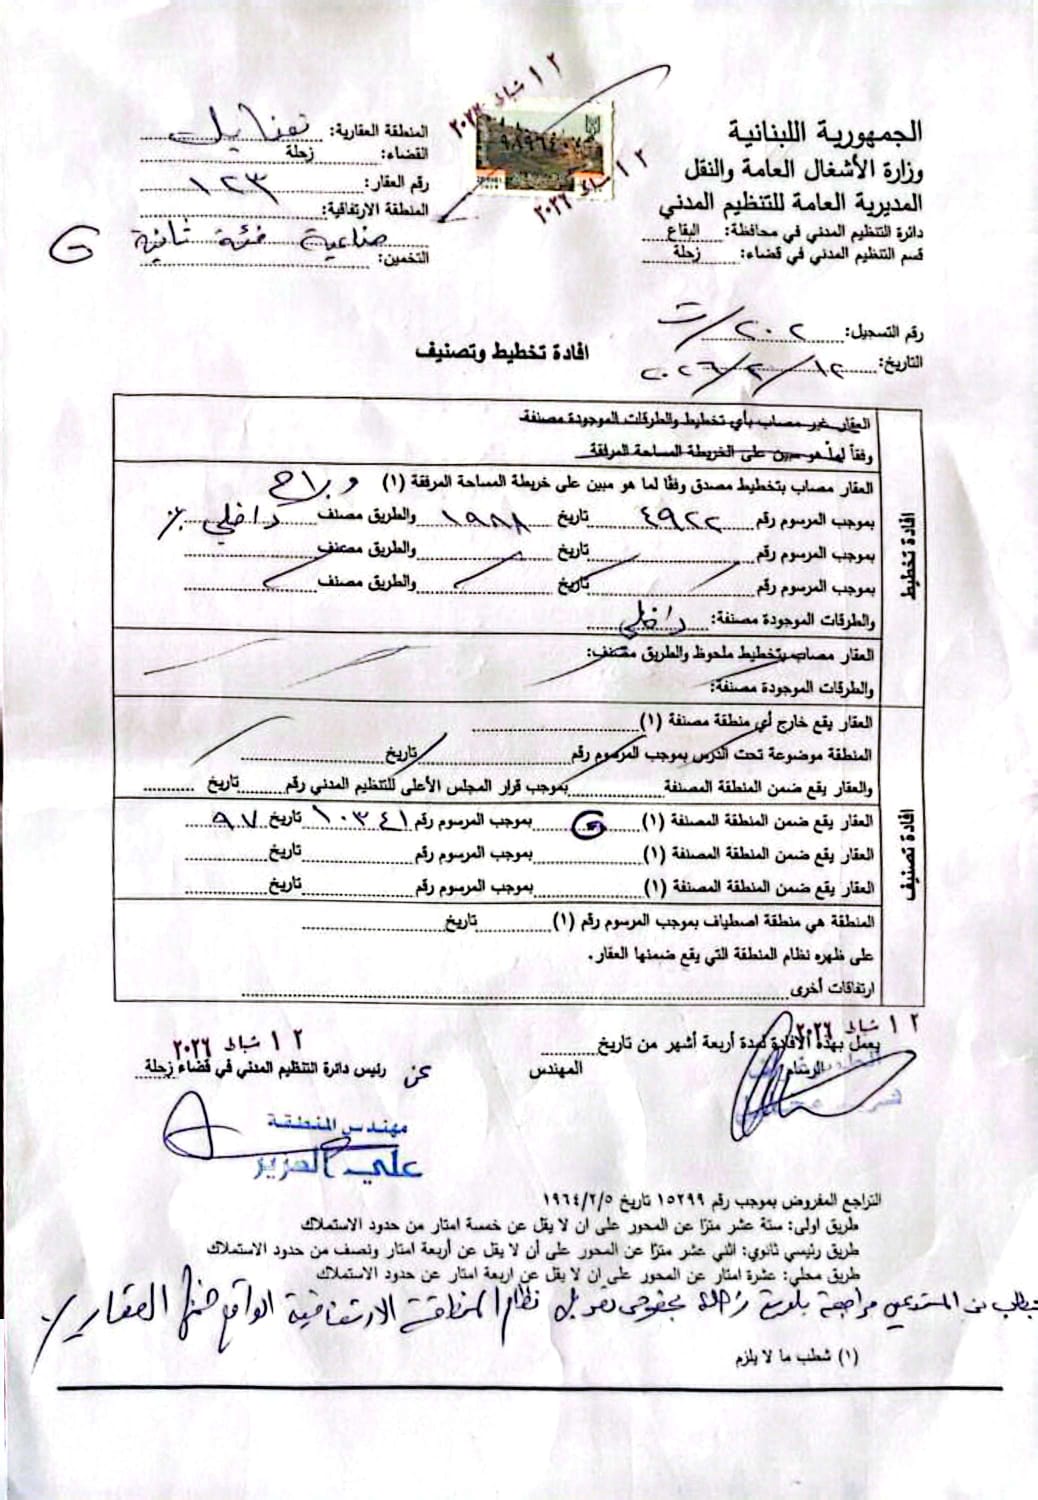 الجمهورية اللبنانية
وزارة الأشغال العامة والنقل
المديرية العامة للتنظيم المدني
دائرة التنظيم المدني في محافظة: البقاع
قسم التنظيم المدني في قضاء: زحلة
١٢ شباط ٢٠٢٦
٩٨٩٦٤٠٧
١٢ شباط ٢٠٢٦
المنطقة العقارية: تعنايل
القضاء: زحلة
رقم العقار: ١٢٣
المنطقة الارتفاقية:
صناعية فئة ثانية G
التخمين:
رقم التسجيل: ٢٠٢/ت
التاريخ: ١٢/٢/٢٠٢٦
افادة تخطيط وتصنيف
افادة تخطيط
العقار غير مصاب بأي تخطيط والطرقات الموجودة مصنفة
وفقاً لما هو مبين على الخريطة المساحة المرفقة
العقار مصاب بتخطيط مصدق وفقا لما هو مبين على خريطة المساحة المرفقة (١)
بموجب المرسوم رقم ٤٩٢٢ تاريخ ١٩٨٨ والطريق مصنف داخلي
بموجب المرسوم رقم تاريخ والطريق مصنف
بموجب المرسوم رقم تاريخ والطريق مصنف
والطرقات الموجودة مصنفة: داخلي
العقار مصاب بتخطيط ملحوظ والطريق مصنف:
والطرقات الموجودة مصنفة:
افادة تصنيف
العقار يقع خارج أي منطقة مصنفة (١)
المنطقة موضوعة تحت الدرس بموجب المرسوم رقم تاريخ
والعقار يقع ضمن المنطقة المصنفة بموجب قرار المجلس الأعلى للتنظيم المدني رقم تاريخ
العقار يقع ضمن المنطقة المصنفة (١) G بموجب المرسوم رقم ١٠٣٤١ تاريخ ٩٧
العقار يقع ضمن المنطقة المصنفة (١) بموجب المرسوم رقم تاريخ
العقار يقع ضمن المنطقة المصنفة (١) بموجب المرسوم رقم تاريخ
المنطقة هي منطقة اصطياف بموجب المرسوم رقم (١) تاريخ
على ظهره نظام المنطقة التي يقع ضمنها العقار.
ارتفاقات أخرى
١٢ شباط ٢٠٢٦
يعمل بهذه الافادة لمدة أربعة أشهر من تاريخ
الرسام
المهندس
١٢ شباط ٢٠٢٦
عن رئيس دائرة التنظيم المدني في قضاء زحلة
مهندس المنطقة
علي
التراجع المفروض بموجب رقم ١٥٢٩٩ تاريخ ١٩٦٤/٢/٥
طريق اولى: ستة عشر مترًا عن المحور على ان لا يقل عن خمسة امتار من حدود الاستملاك
طريق رئيسي ثانوي: اثني عشر مترًا عن المحور على أن لا يقل عن أربعة امتار ونصف من حدود الاستملاك
طريق محلي: عشرة امتار عن المحور على ان لا يقل عن اربعة امتار عن حدود الاستملاك
يطلب من المستدعي مراجعة بلدية زحلة بخصوص تعديل نظام المنطقة الارتفاقية الواقع ضمنها العقار
(١) شطب ما لا يلزم